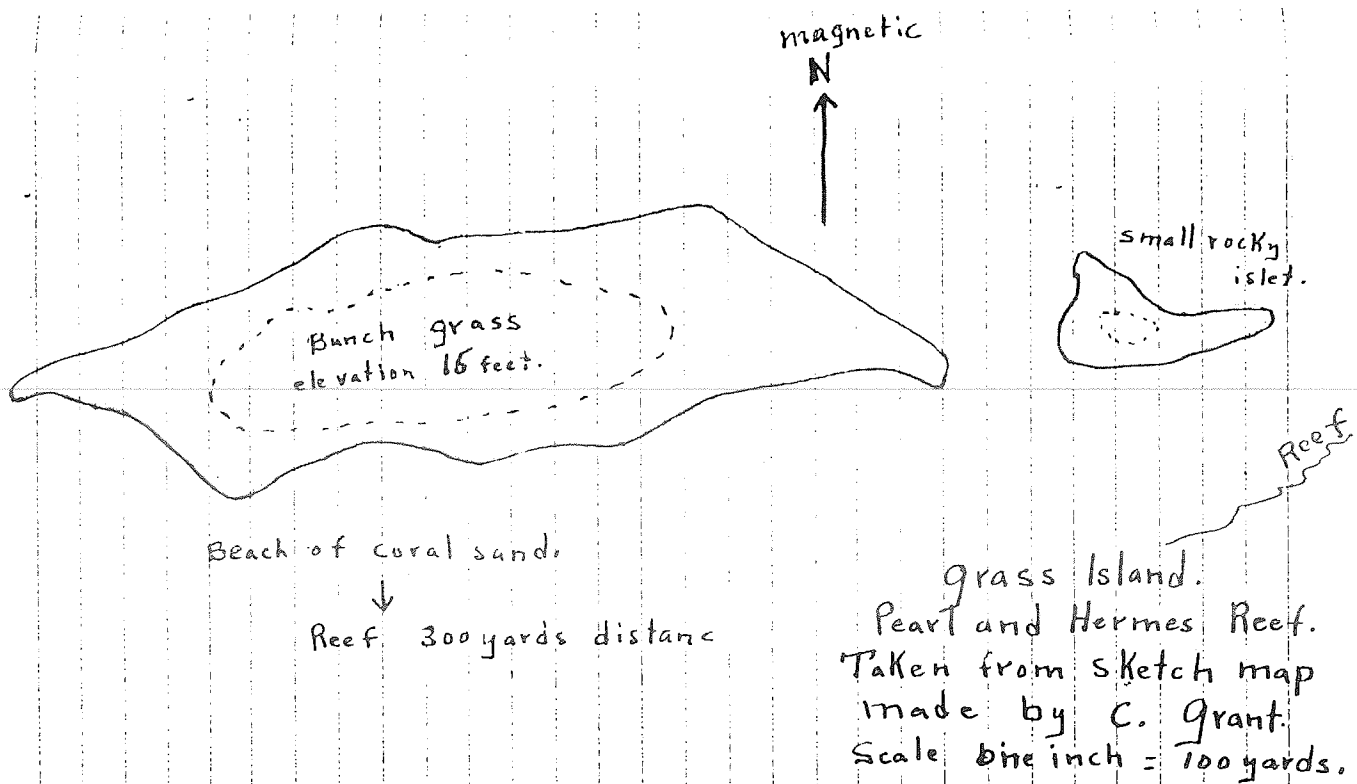 magnetic
N
small rocky
islet.
Bunch grass
elevation 15 feet.
Reef
Beach of coral sand.
Reef 300 yards distanc
grass Island.
Pearl and Hermes Reef.
Taken from sketch map
made by C. Grant.
Scale one inch = 100 yards.